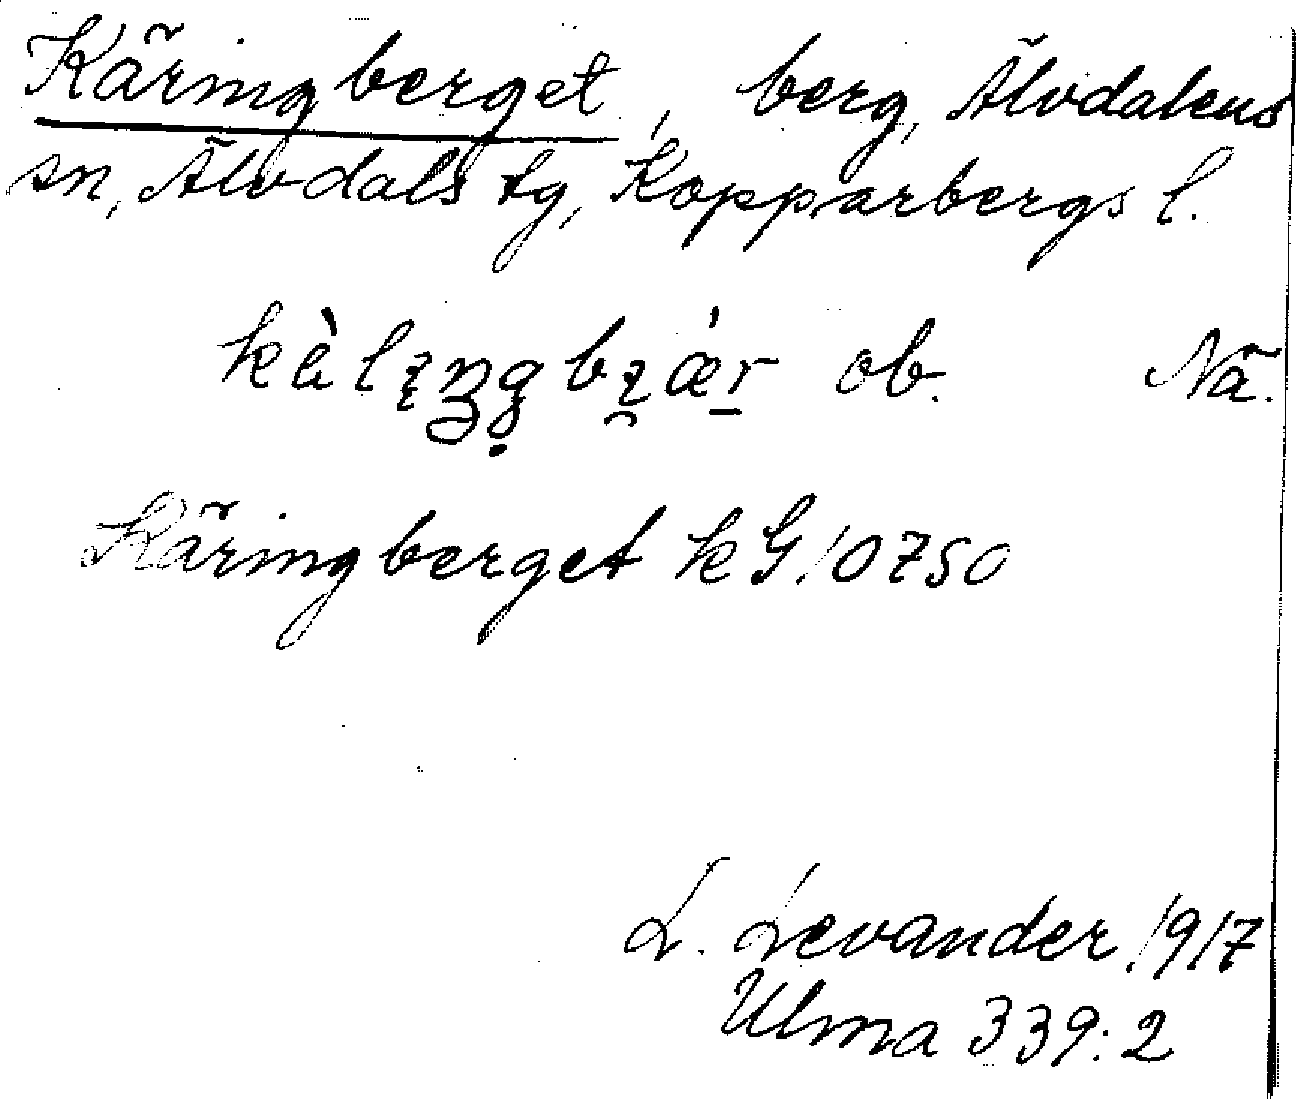 Käringberget, berg, Älvdalens
sn, Älvdals tg, Kopparbergs l.
ob. Nä.
Käringberget kG 10750
L. Levander 1917
Ulma 339:2